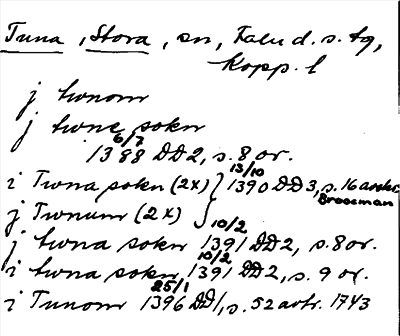 Tuna, Stora, sn, Falu d. s. tg,
Kopp. l
j twnom
j twne sokn
6/7
1388 DD2, s. 8 or.
13/10
i Twna sokn (2x) } 1390 DD3, s. 16
Brocman
j Twnum (2x)
10/2
j twna sokn 1391 DD2, s. 8 or.
10/2
i twna sokn, 1391 DD2, s. 9 or.
25/1
i Tunom 1396 DD1, s. 52 avtr. 1743